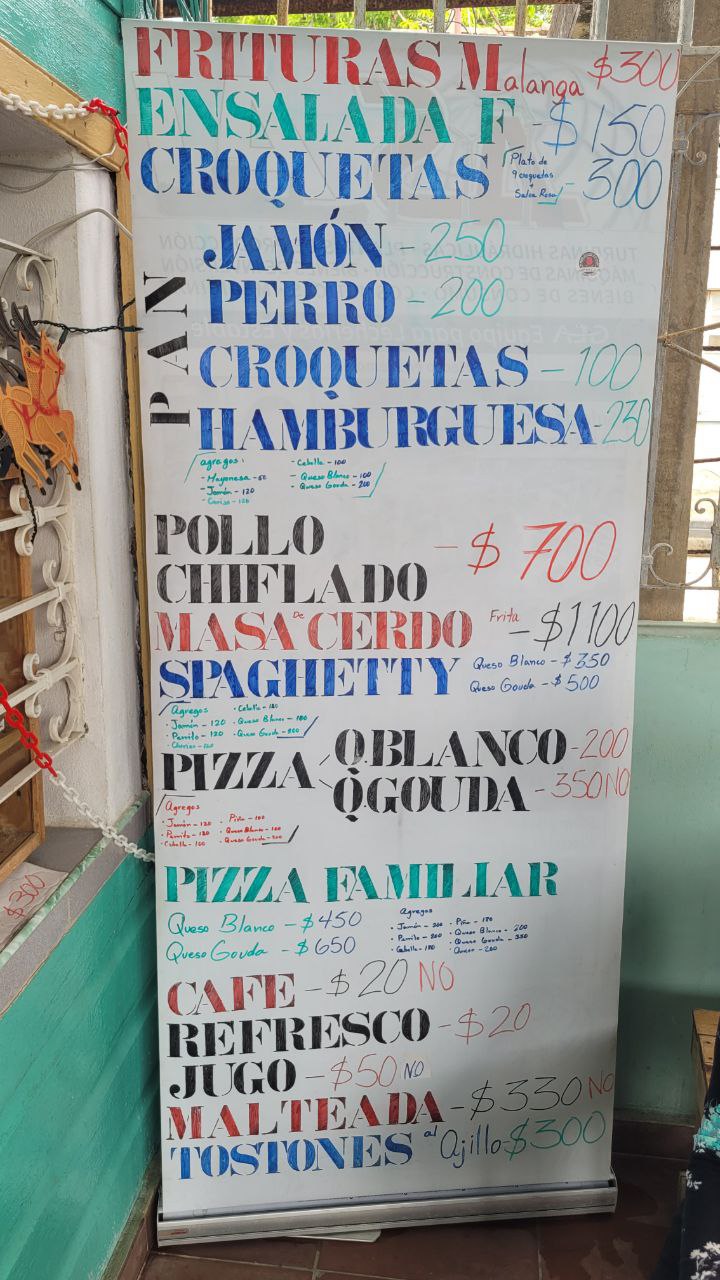 FRITURAS Malanga $300
ENSALADA F - $150
CROQUETAS Plato de 9 croquetas y Salsa Rosa - 300
PAN
JAMÓN - 250
PERRO - 200
CROQUETAS - 100
HAMBURGUESA - 230
agregos:
- Mayonesa - 60
- Jamón - 120
- Cebolla - 100
- Queso Blanco - 100
- Queso Gouda - 200
POLLO
CHIFLADO - $700
MASA De CERDO Frita - $1100
SPAGHETTY Queso Blanco - $350
Queso Gouda - $500
Agregos
· Jamón - 120
· Perrito - 120
· Queso Gouda - 200
PIZZA Q.BLANCO - 200
Q.GOUDA - 350 NO
Agregos
· Jamón - 120
· Perrito - 120
· Cebolla - 100
· Piña - 100
· Queso Blanco - 100
· Queso Gouda - 200
PIZZA FAMILIAR
Queso Blanco - $450
Queso Gouda - $650
Agregos
· Jamón - 200
· Perrito - 200
· Cebolla - 180
· Piña - 180
· Queso Blanco - 200
· Queso Gouda - 350
CAFE - $20 NO
REFRESCO - $20
JUGO - $50 NO
MALTEADA - $330 NO
TOSTONES al Ajillo - $300
$300